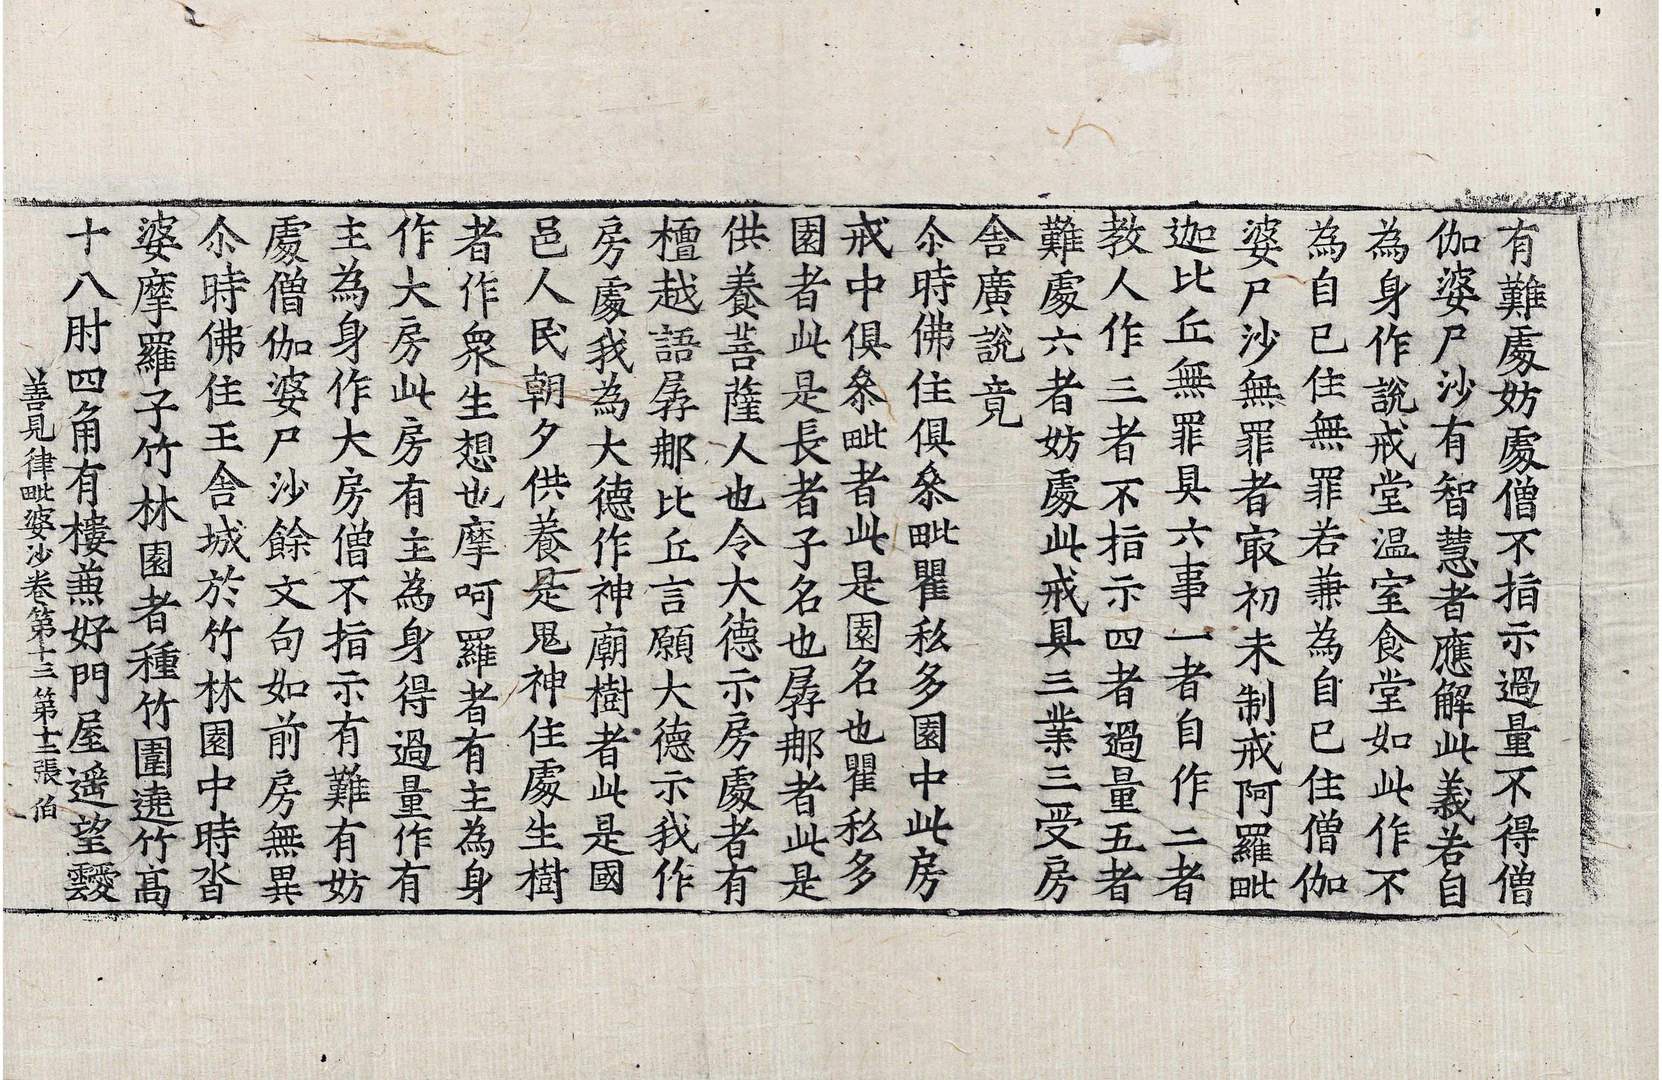 有難處妨處僧不指示過量不得僧
伽婆尸沙有智慧者應解此義若自
為身作說戒堂温室食堂如此作不
為自已住無罪若兼為自已住僧伽
婆尸沙無罪者㝡初未制戒阿羅毗
迦比丘無罪具六事一者自作二者
教人作三者不指示四者過量五者
難處六者妨處此戒具三業三受房
舎廣說竟
尒時佛住俱叅毗瞿私多園中此房
戒中俱叅毗者此是園名也瞿私多
園者此是長者子名也孱那者此是
供養菩薩人也令大德示房處者有
檀越語孱那比丘言願大德示我作
房處我為大德作神廟樹者此是國
邑人民朝夕供養是鬼神住處生樹
者作衆生想也摩呵羅者有主為身
作大房此房有主為身得過量作有
主為身作大房僧不指示有難有妨
處僧伽婆尸沙餘文句如前房無異
尒時佛住王舎城於竹林園中時沓
婆摩羅子竹林園者種竹圍遶竹髙
十八肘四角有樓兼好門屋遥望靉
善見律毗婆沙卷第十三 第十二張 伯